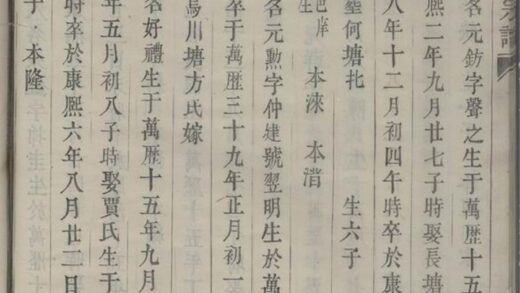 名元鈁字聲之生于萬歷十五
熙二年九月廿七子時娶長塘
八年十二月初四午時卒於康
塟何塘圵 生六子
本淶 本湝
名元勲字仲建號翌明生於萬
卒于萬歷三十九年正月初一
烏川塘方氏嫁
名好禮生于萬歷十五年九月
年五月初八子時娶賈氏生于
時卒於康熙六年八月廿二日
子 本隆